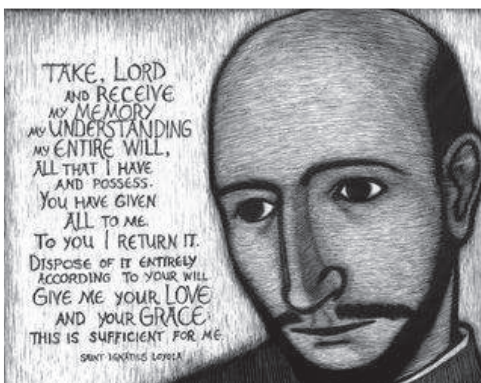 TAKE, LORD
AND RECEIVE
MY MEMORY
MY UNDERSTANDING
MY ENTIRE WILL,
ALL THAT I HAVE
AND POSSESS.
YOU HAVE GIVEN
ALL TO ME.
TO YOU I RETURN IT.
DISPOSE OF IT ENTIRELY
ACCORDING TO YOUR WILL
GIVE ME YOUR LOVE
AND YOUR GRACE:
THIS IS SUFFICIENT FOR ME.
SAINT IGNATIUS LOYOLA